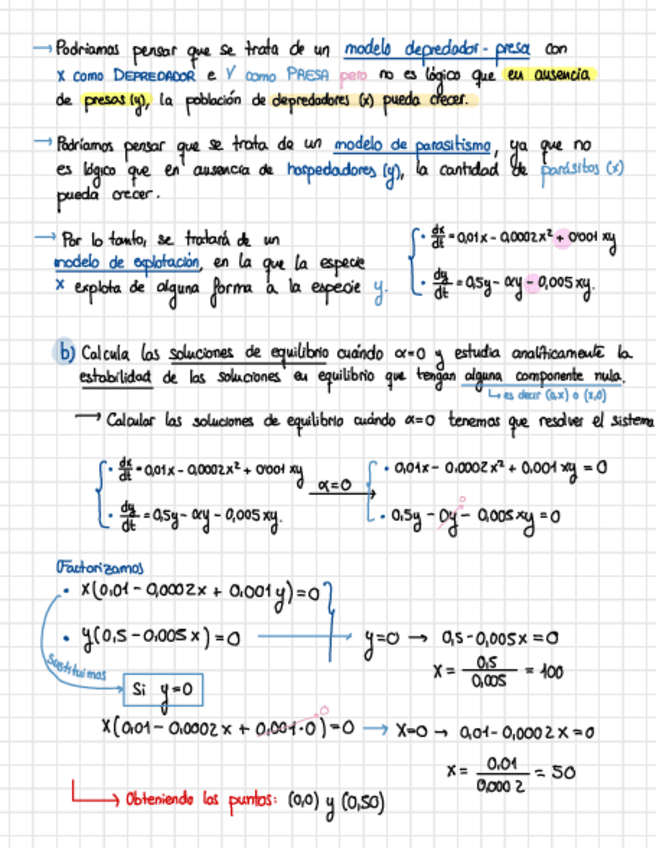 → Podríamos pensar que se trata de un modelo depredador - presa con
X como DEPREDADOR e Y como PRESA pero no es lógico que en ausencia
de presas (y), la población de depredadores (x) pueda crecer.
→ Podríamos pensar que se trata de un modelo de parasitismo, ya que no
es lógico que en ausencia de hospedadores (y), la cantidad de parásitos (x)
pueda crecer.
→ Por lo tanto, se tratará de un
modelo de explotación, en la que la especie
X explota de alguna forma a la especie y.
· dx/dt = 0,01x - 0,0002x² + 0'001 xy
· dy/dt = 0,5y - αy - 0,005 xy.
b) Calcula las soluciones de equilibrio cuándo α=0 y estudia analíticamente la
estabilidad de las soluciones en equilibrio que tengan alguna componente nula.
↳ es decir (0,x) o (x,0)
→ Calcular las soluciones de equilibrio cuándo α=0 tenemos que resolver el sistema
· dx/dt = 0,01x - 0,0002x² + 0'001 xy
· dy/dt = 0,5y - αy - 0,005 xy.
α=0
· 0,01x - 0.0002x² + 0,001 xy = 0
· 0.5y - 0y - 0,005xy = 0
0
Factorizamos
· x(0,01 - 0,0002x + 0,001y)=0
· y(0,5 - 0,005x)=0 → y=0 → 0,5 - 0,005x = 0
x = 0,5/0,005 = 100
Sustituimos
Si y=0
x(0,01 - 0,0002x + 0,001·0)=0 → X=0 → 0,01 - 0,0002x = 0
0
x = 0,01/0,0002 = 50
→ Obteniendo los puntos: (0,0) y (0,50)